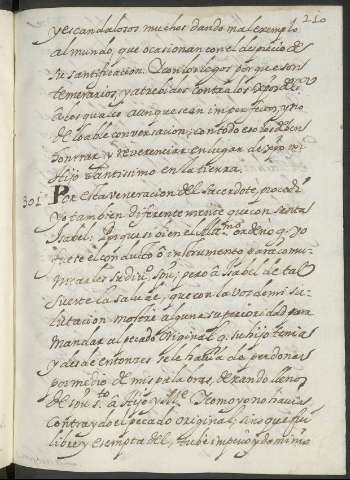 210
y escandalosos muchos dando mal exemplo
al mundo, que ocasionan con el despreçio de
su santificacion. Y con los legos porque son
temerarios, y atrebidos contra los
a los quales aunque sean imperfectos, y no
de loable conversacion; con todo eso los deben
honrrar y reverenciar en lugar de
Hijo santissimo en la tierra.
301 Por esta veneracion del sacerdote, procedi
yo tambien diferentemente que con santa
Isabel; porque si bien el ordeno q. yo
fuese el conducto ô instrumento para comu-
nicarles su spu; pero â Isabel de tal
suerte la salude, que con la voz de mi sa-
lutacion mostre alguna superioridad para
mandar al pecado original q. su hijo tenia
y desde entonces se le havia de perdonar
por medio de mis palabras, dexando llenos
de spu sto. â Hijo y Me. Y como yo no havia
contraydo el pecado original, sino que fui
libre y exempta del, tube imperio y dominio